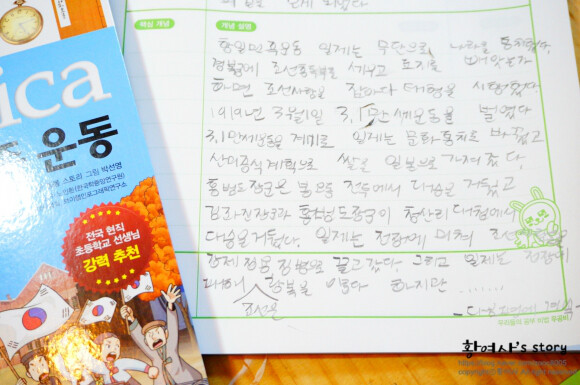 핵심 개념
개념 설명
항일민족운동 일제는 무단으로 나라를 통치했다.
경복궁에 조선총독부를 세우고 토지를
하면 조선사람을 잡아다 태형을 시행했다
1919년 3월1일 3.1만세운동을 벌였다
3.1만세운동을 계기로 일제는 문화통치로 바꾸고
산미증식계획으로 쌀을 일본으로 가져갔다.
홍범도장군은 봉오동 전투에서 대승을 거뒀고
김좌진장군과 홍범도장군이 청산리 대첩에서
대승을 거뒀다. 일제는 전쟁에 미쳐
강제 징용 징병으로 끌고 갔다. 그리고 일제는 전쟁에
항복을 하지만 ......
조선은
ica
운동
스토리 그림 박선영
전국 현직
초등학교 선생님
강력 추천
황여사's story